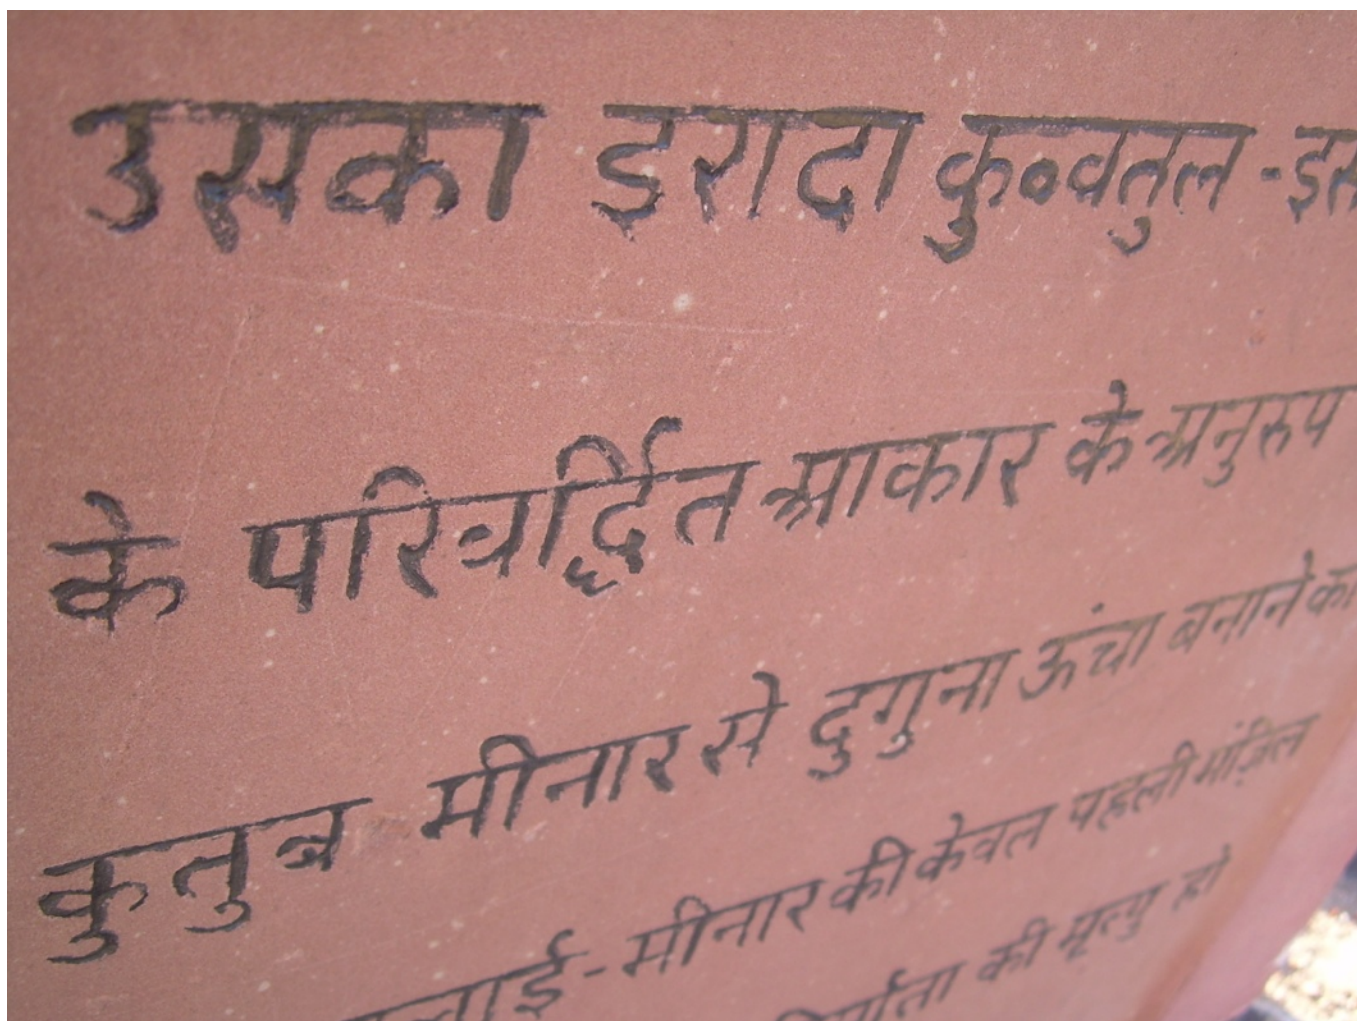 उसका इरादा कु०वतुल-इस
के परिवर्द्धित आकार के अनुरुप
कुतुब मीनार से दुगुना ऊंचा बनाने का
लाई-मीनार की केवल पहली मंज़िल
की मृत्यु हो